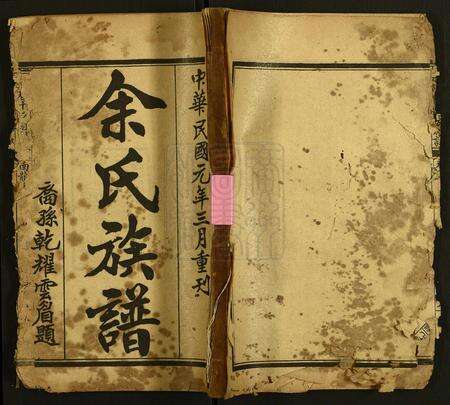 中華民國元年三月重刊
余氏族譜
裔孫乾耀雲眉題